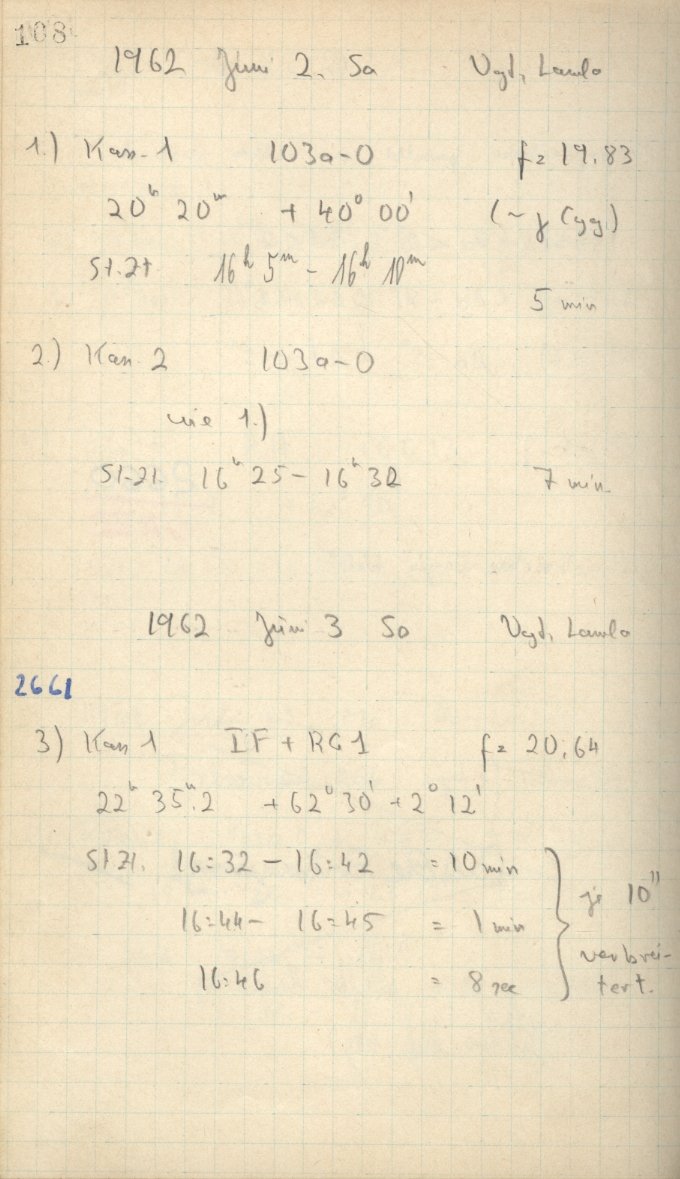 108
1962 Juni 2. Sa Vogt, Lamla
1.) Kass. 1 103a-O f = 19,83
20ʰ 20ᵐ + 40° 00' (~ γ Cyg)
St.Zt 16ʰ 5ᵐ - 16ʰ 10ᵐ
5 min
2.) Kass. 2 103a-O
wie 1.)
St.Zt. 16ʰ 25 - 16ʰ 32 7 min
1962 Juni 3 So Vogt, Lamla
2661
3) Kass 1 IF + RG1 f = 20,64
22ʰ 35ᵐ.2 + 62° 30' + 2° 12'
St.Zt. 16:32 - 16:42 = 10 min
16:44 - 16:45 = 1 min
16:46 = 8 sec
je 10"
verbrei-
tert.